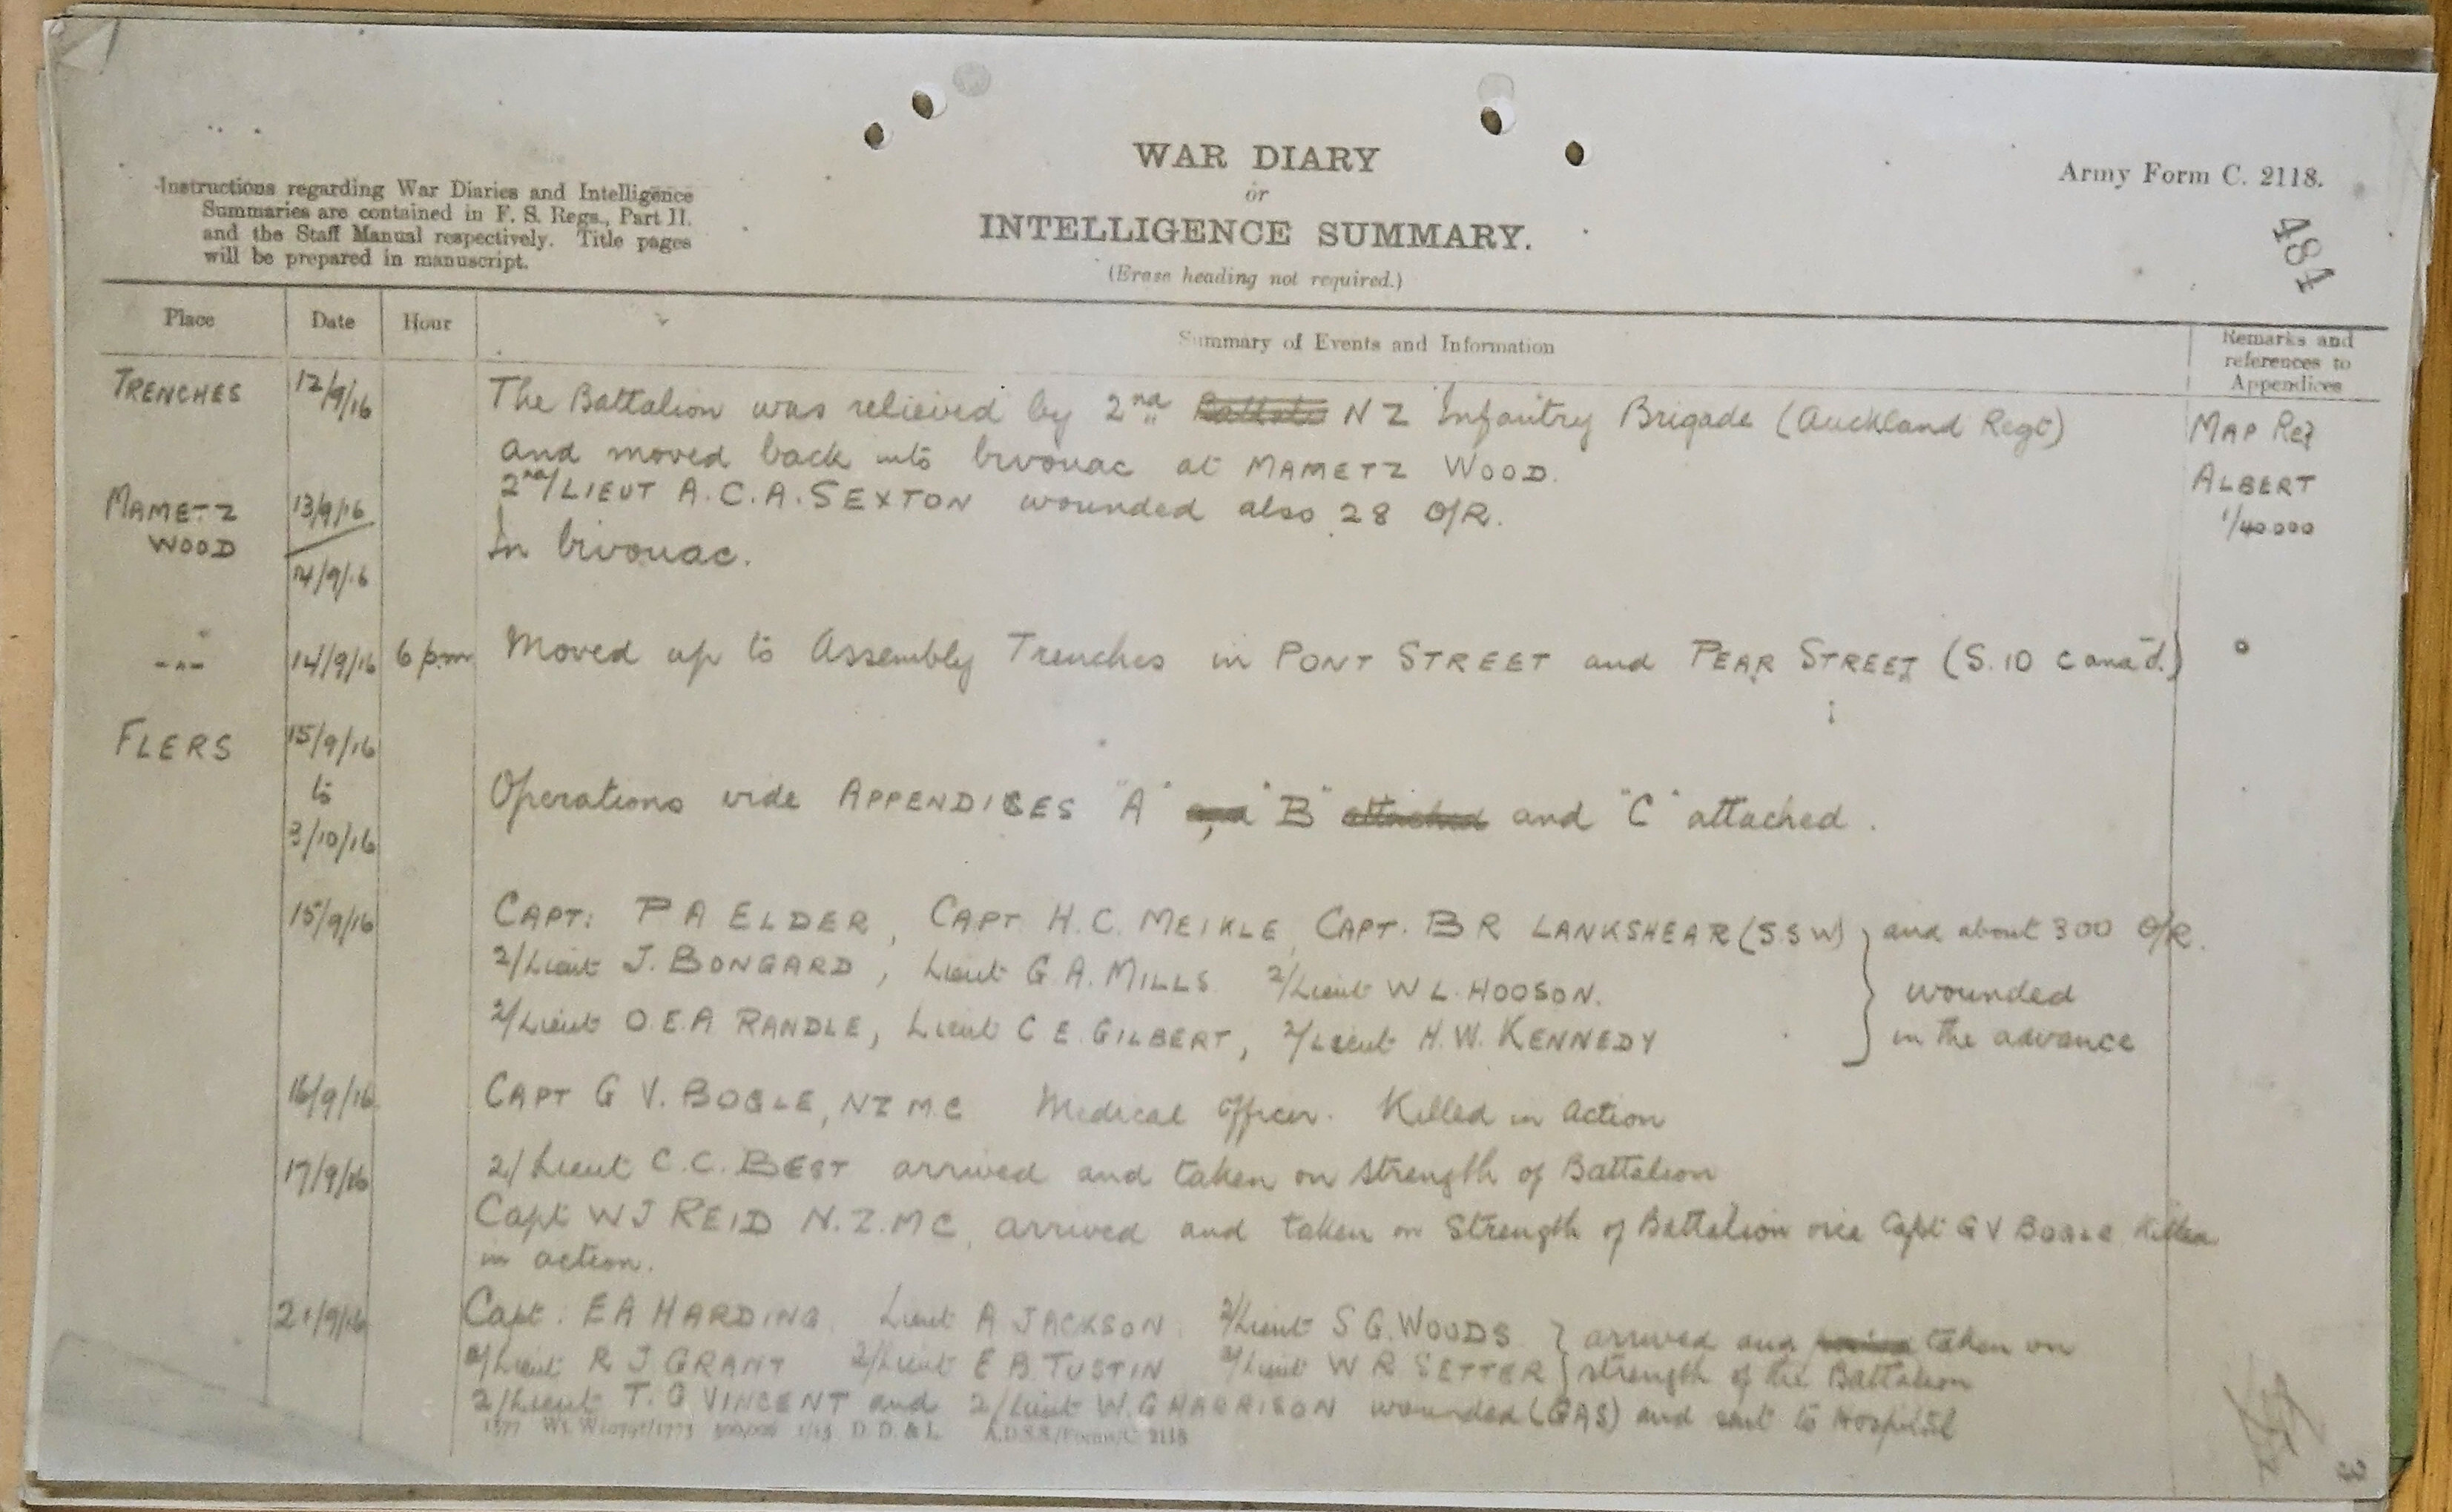 Instructions regarding War Diaries and Intelligence
Summaries are contained in F. S. Regs., Part II.
and the Staff Manual respectively. Title pages
will be prepared in manuscript.
WAR DIARY
or
INTELLIGENCE SUMMARY.
(Erase heading not required.)
Army Form C. 2118.
484
Place Date Hour Summary of Events and Information Remarks and
references to
Appendices
TRENCHES 12/9/16 The Battalion was relieved by 2nd NZ Infantry Brigade (Auckland Regt) MAP Ref
and moved back into bivouac at MAMETZ WOOD. ALBERT
2nd/LIEUT A.C.A. SEXTON wounded also 28 O/R. 1/40000
MAMETZ 13/9/16 In bivouac.
WOOD
14/9/16
-"- 14/9/16 6 pm Moved up to Assembly Trenches in PONT STREET and PEAR STREET (S.10 c and d.)
FLERS 15/9/16
to
3/10/16 Operations vide APPENDICES "A" "B" attached and "C" attached.
15/9/16 CAPT: P A ELDER, CAPT H.C. MEIKLE, CAPT. B R LANKSHEAR (S.S.W) and about 300 O/R.
2/Lieut J. BONGARD, Lieut G.A. MILLS 2/Lieut W L. HODSON. wounded
2/Lieut O.E.A RANDLE, Lieut C E. GILBERT, 2/Lieut H.W. KENNEDY in the advance
16/9/16 CAPT G V. BOGLE, NZMC Medical Officer. Killed in Action
17/9/16 2/Lieut C.C. BEST arrived and taken on strength of Battalion
Capt W J REID N.Z.MC, arrived and taken on Strength of Battalion vice Capt G V BOGLE Killed
in action.
21/9/16 Capt: E A HARDING. Lieut A JACKSON. 2/Lieut S G. WOODS arrived and taken on
2/Lieut R J GRANT 2/Lieut E B TUSTIN 2/Lieut W R SETTER strength of the Battalion
2/Lieut T. G VINCENT and 2/Lieut W. G HARRISON wounded (GAS) and sent to Hospital
D. D. & L. A.D.S.S./Forms/C. 2118
3